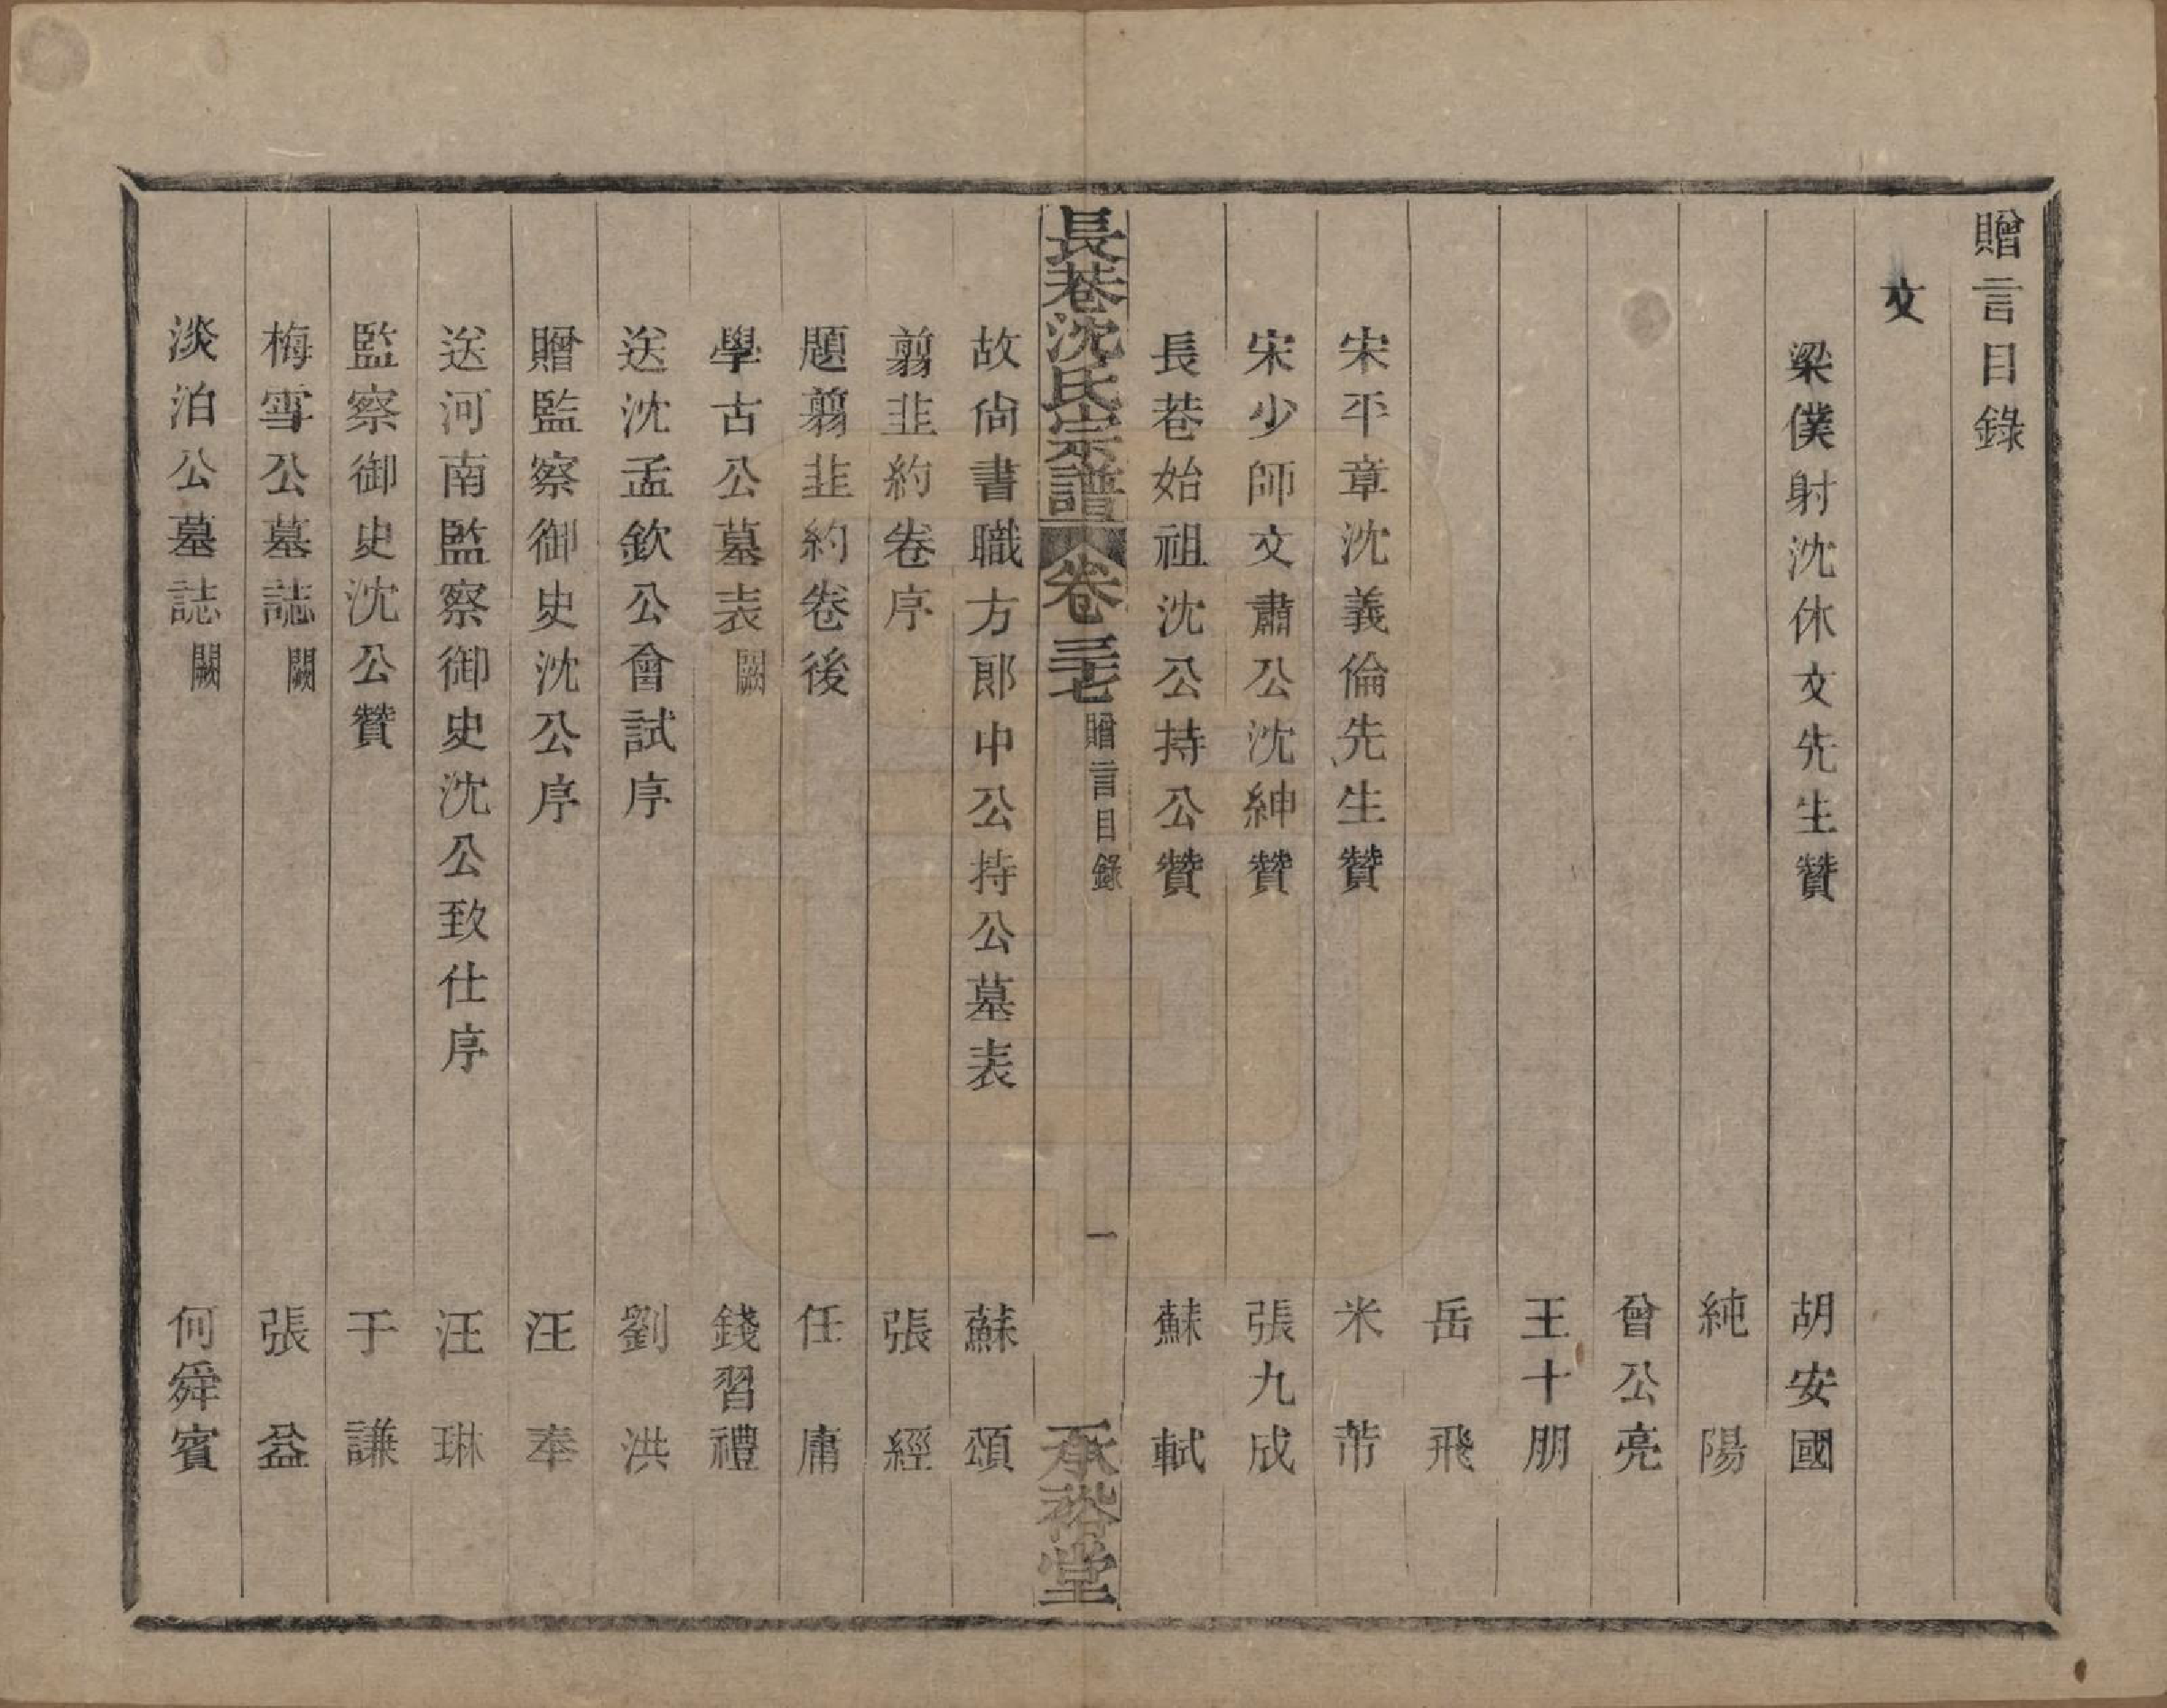 贈言目錄
文
梁僕射沈休文先生贊 胡安國
純陽
曾公亮
王十朋
岳飛
宋平章沈義倫先生贊 米芾
宋少師文肅公沈紳贊 張九成
長巷始祖沈公持公贊 蘇軾
長巷沈氏宗譜 卷三七 贈言目錄 一 承裕堂
故尙書職方郎中公持公墓表 蘇頌
翦韭約卷序 張經
題翦韭約卷後 任庸
學古公墓表 闕 錢習禮
送沈孟欽公會試序 劉洪
贈監察御史沈公序 汪奉
送河南監察御史沈公致仕序 汪琳
監察御史沈公贊 于謙
梅雪公墓誌 闕 張益
淡泊公墓誌 闕 何舜賓